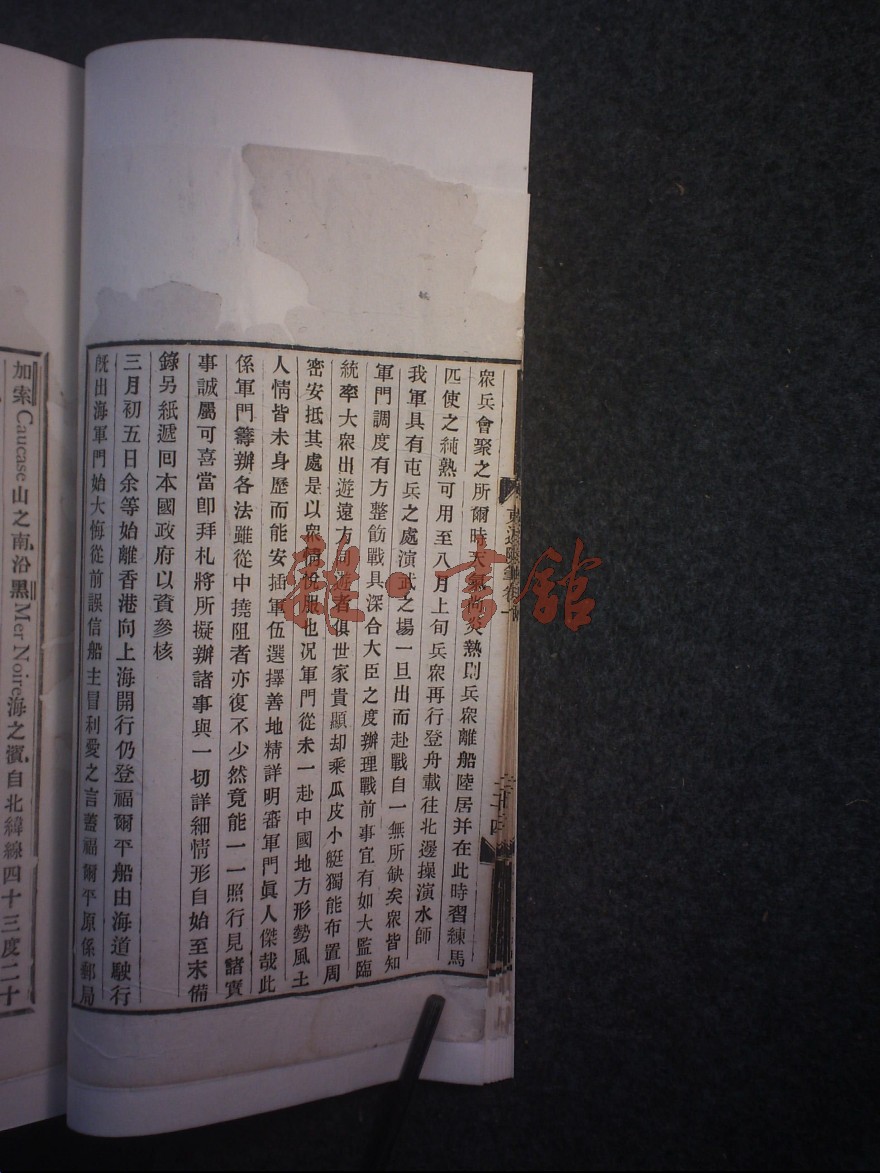 衆兵會聚之所爾時天氣尚炎熱則兵衆離船陸居并在此時習練馬
匹使之純熟可用至八月上旬兵衆再行登舟載往北邊操演水師
我軍具有屯兵之處演武之場一旦出而赴戰自一無所缺矣衆皆知
軍門調度有方整飭戰具深合大臣之度辦理戰前事宜有如大監臨
統率大衆出遊遠方同遊者俱世家貴顯却乘瓜皮小艇獨能布置周
密安抵其處是以衆情悅服也况軍門從未一赴中國地方形勢風土
人情皆未身歷而能安插軍伍選擇善地精詳明審軍門眞人傑哉此
係軍門籌辦各法雖從中撓阻者亦復不少然竟能一一照行見諸實
事誠屬可喜當卽拜札將所擬辦諸事與一切詳細情形自始至末備
錄另紙遞囘本國政府以資參核
三月初五日余等始離香港向上海開行仍登福爾平船由海道駛行
旣出海軍門始大悔從前誤信船主冒利愛之言蓋福爾平原係郵局
加索Caucase山之南沿黑Mer Noire海之濱自北緯線四十三度二十
雜·書舘